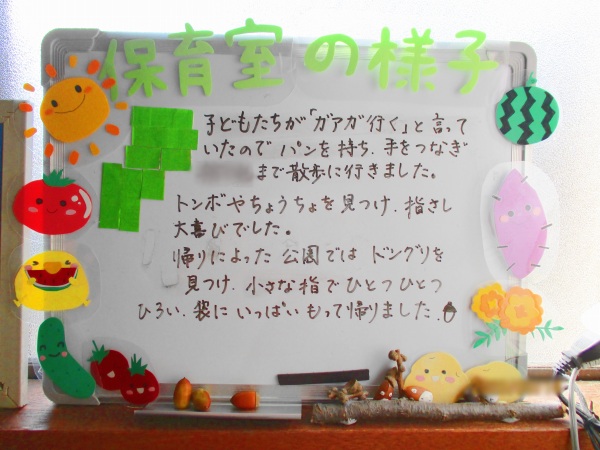 保育室の様子
子どもたちが「ガアガ行く」と言って
いたので パンを持ち、手をつなぎ
まで散歩に行きました。
トンボやちょうちょを見つけ、指さし
大喜びでした。
帰りによった 公園では ドングリを
見つけ、小さな指でひとつひとつ
ひろい、袋に いっぱい もって帰りました。